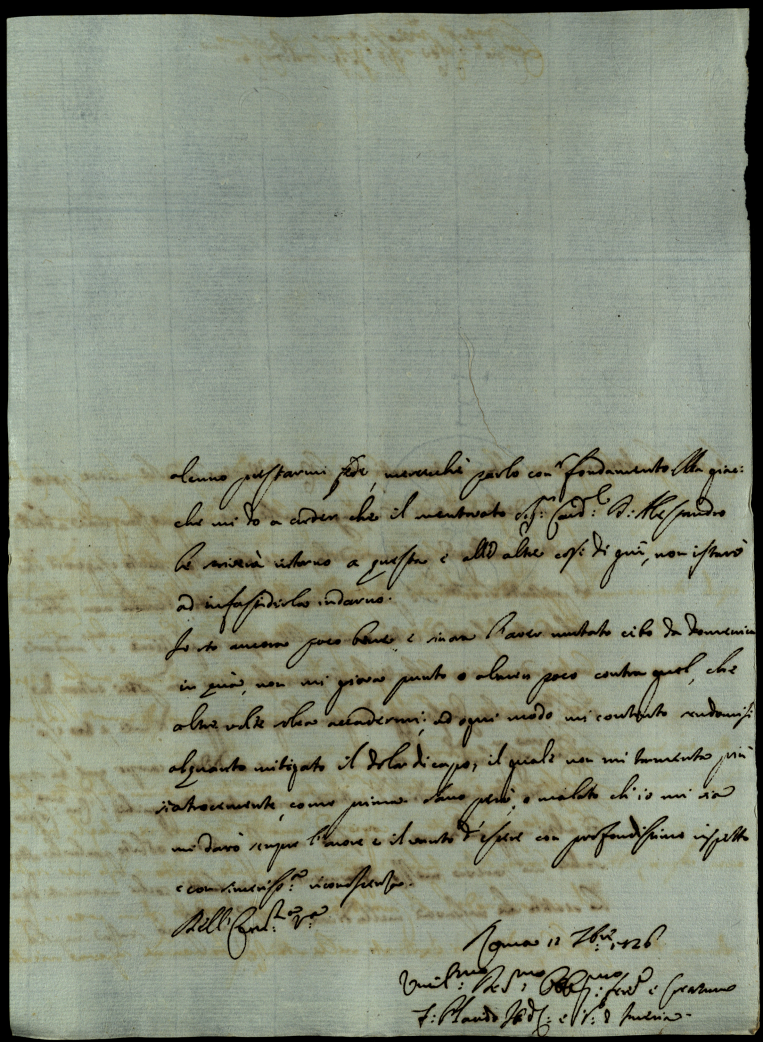 alcuno prestarmi fede, mercechè parlo con fondamento. Ma giac:
che mi do a creder che il mentovato Sig: Card:l D: Alessandro
le scriverà intorno a questa e all'altre cose di qui, non istarò
ad infastidirla indarno.
Io sto ancora poco bene, e sinora l'aver mutato cibo da Domenica
in quà, non mi giova punto o almen poco contra quel, che
altre volte solea accadermi; ad ogni modo mi contento
alquanto mitigato il dolor di capo, il quale non mi tormenta più
sì atrocemente, come prima. Sano però, o malato ch'io mi sia
mi darò sempre l'onore e il vanto d'essere con profondissimo rispetto
e riconoscenza.
Dell'
Roma 12 7bre 1726
Umil:mo Dev:mo Obb:mo Serv:e e
F: